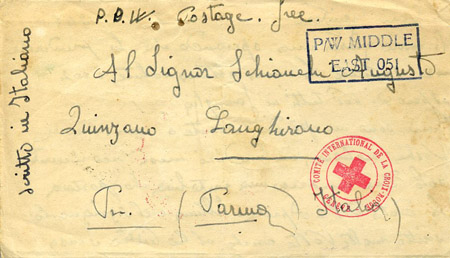 P.O.W. Postage free.
P/W MIDDLE
EAST 051
Scritto in Italiano
Al Signor Schianchi Augusto
Quinzano Langhirano
Pr. (Parma) Italia
COMITÉ INTERNATIONAL DE LA CROIX-ROUGE
GENÈVE